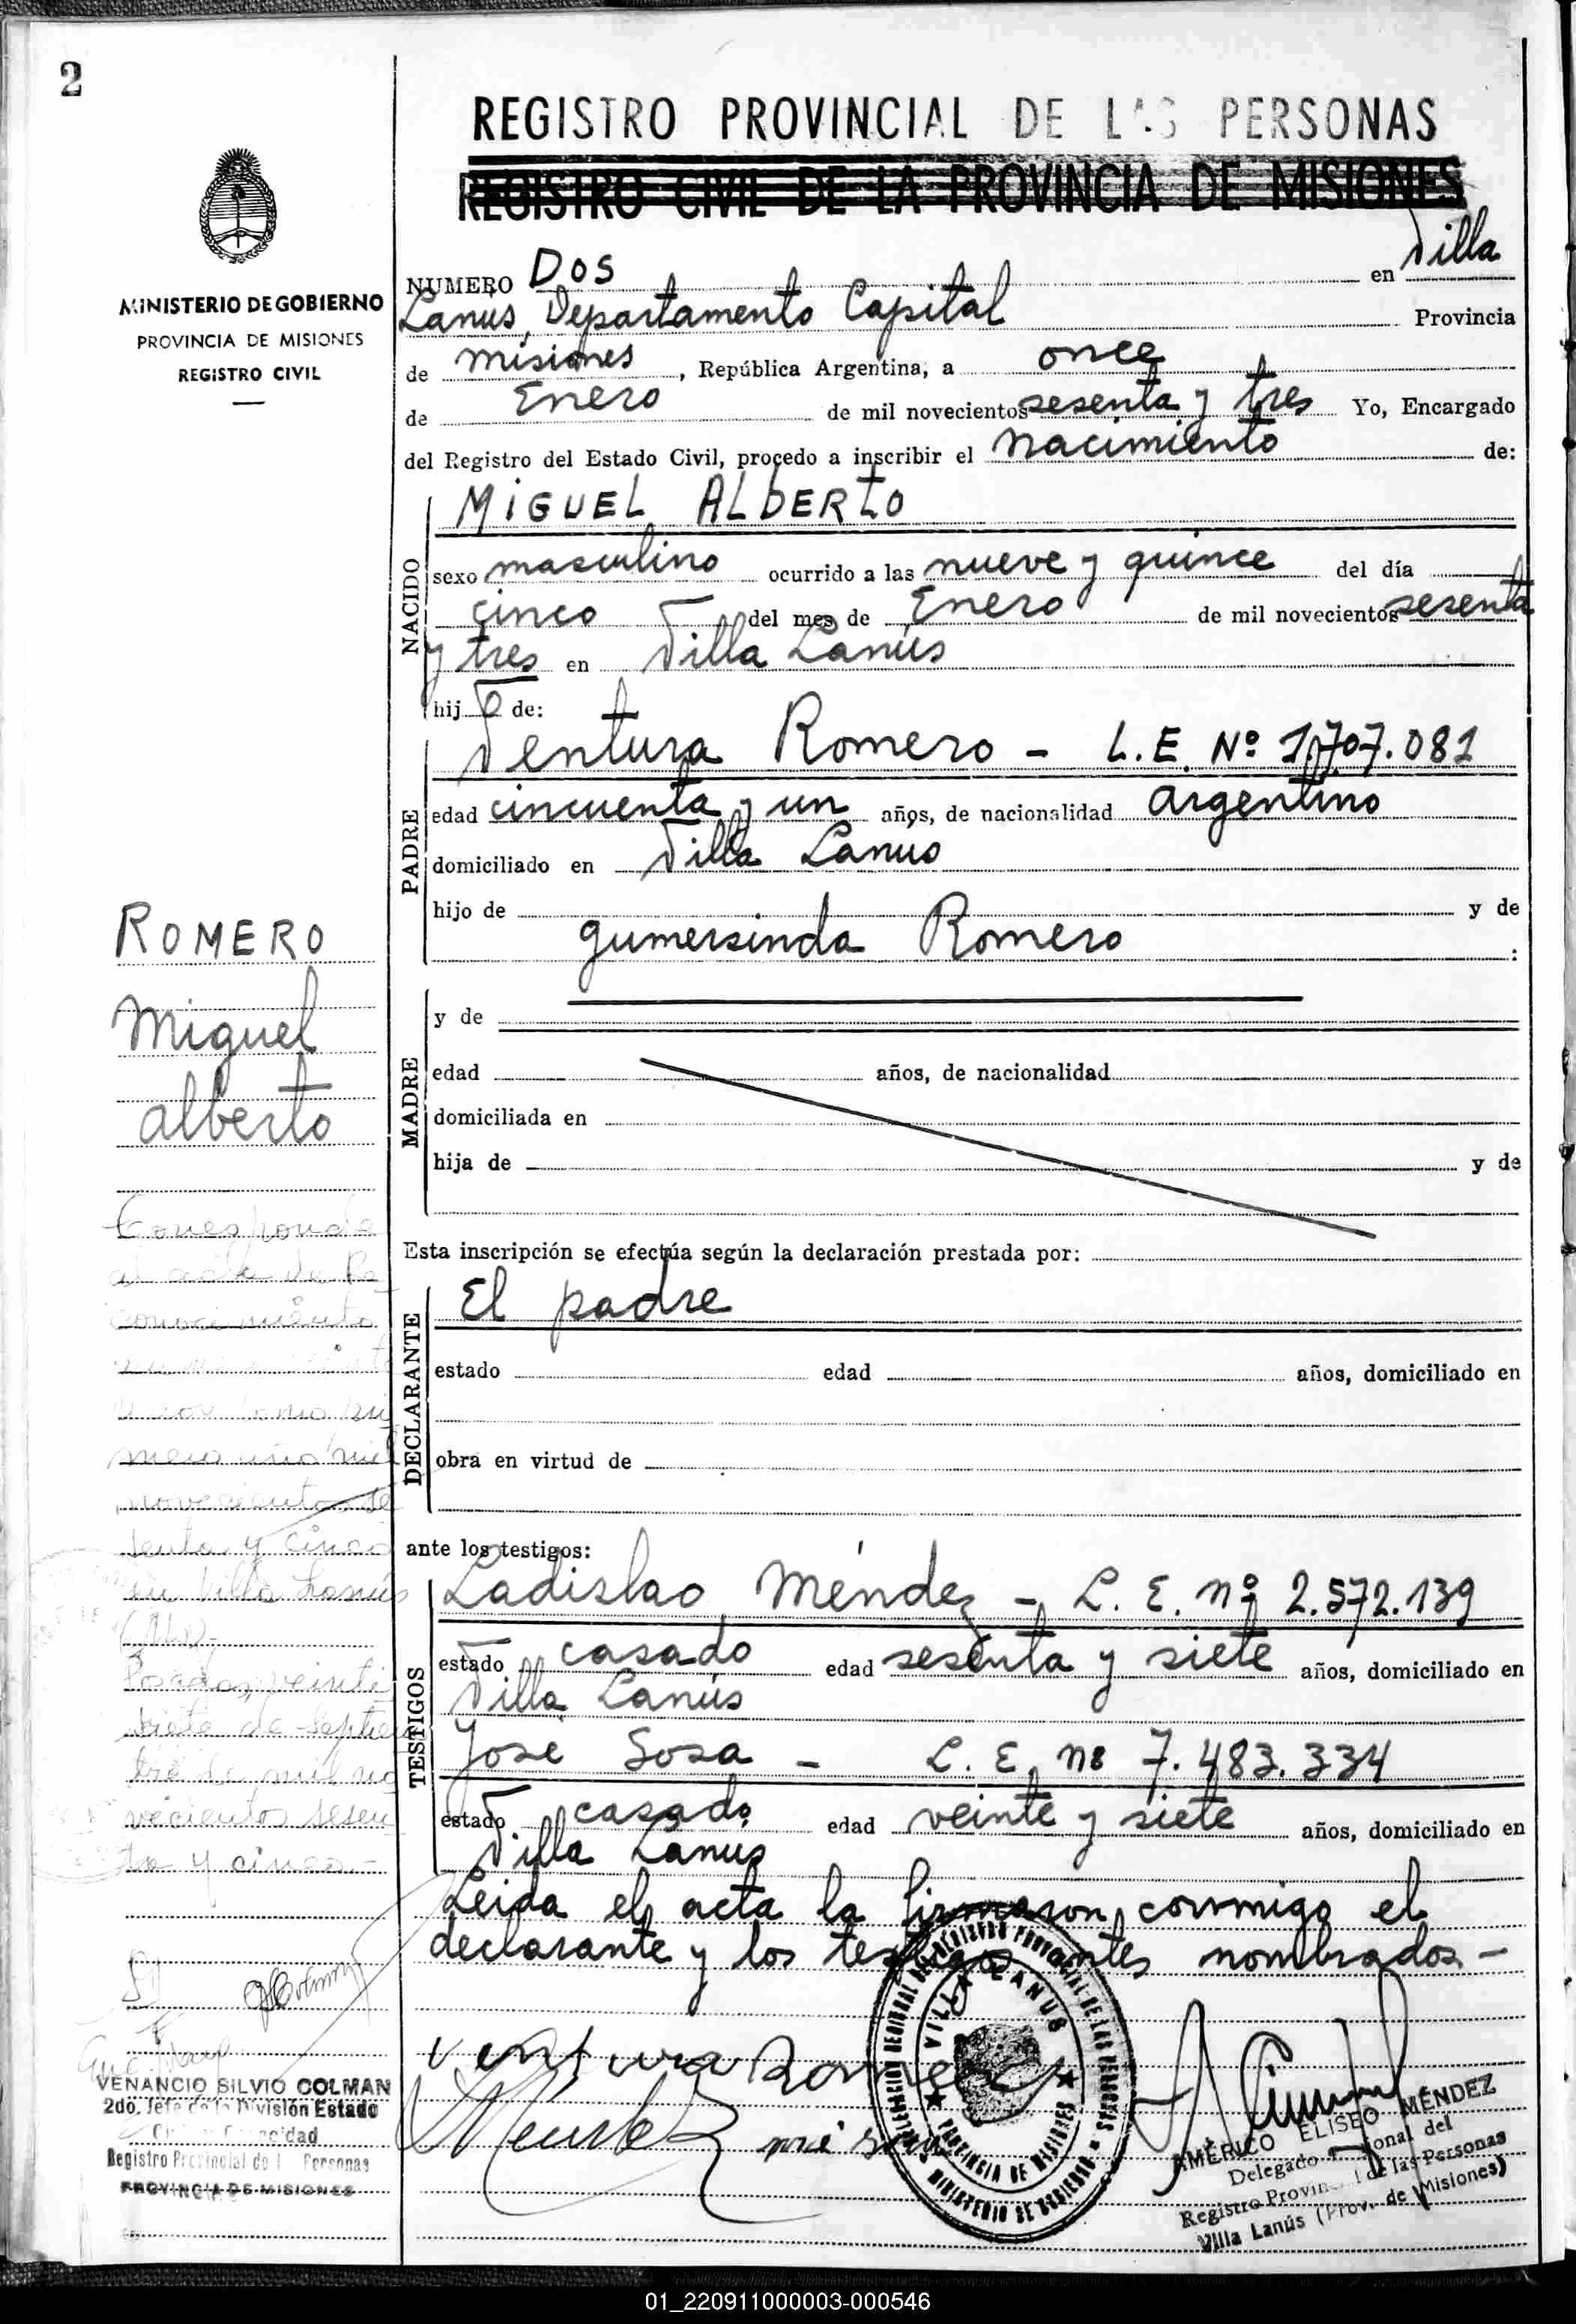 2
REGISTRO PROVINCIAL DE LAS PERSONAS
REGISTRO CIVIL DE LA PROVINCIA DE MISIONES
MINISTERIO DE GOBIERNO
PROVINCIA DE MISIONES
REGISTRO CIVIL
NUMERO DOS en Villa
Lanús, Departamento Capital Provincia
de Misiones, República Argentina, a once
de Enero de mil novecientos sesenta y tres Yo, Encargado
del Registro del Estado Civil, procedo a inscribir el nacimiento de:
NACIDO
MIGUEL ALBERTO
sexo masculino ocurrido a las nueve y quince del día
cinco del mes de Enero de mil novecientos sesenta
y tres en Villa Lanús
hijo de:
PADRE
Ventura Romero - L.E. Nº 1.707.081
edad cincuenta y un años, de nacionalidad argentino
domiciliado en Villa Lanus
hijo de y de
gumersinda Romero :
MADRE
y de
edad años, de nacionalidad
domiciliada en
hija de y de
Esta inscripción se efectúa según la declaración prestada por:
DECLARANTE
El padre
estado edad años, domiciliado en
obra en virtud de
ante los testigos:
TESTIGOS
Ladislao Méndez - L.E. nº 2.572.139
estado casado edad sesenta y siete años, domiciliado en
Villa Lanús
José Sosa - L.E. nº 7.483.334
estado casado edad veinte y siete años, domiciliado en
Villa Lanus
Leida el acta la firmaron conmigo el
declarante y los testigos antes nombrados -
Ventura Romero
ROMERO
Miguel
alberto
Corresponde
al acta de Re
conocimiento
numero
mero uno mil
novecientos se
senta y cinco
en Villa Lanús
Posadas, veinti
siete de septiem
bre de mil no
vecientos sesen
ta y cinco.-
VENANCIO SILVIO COLMAN
2do. Jefe de la División Estado
Registro Provincial de Personas
PROVINCIA DE MISIONES
DELEGACION REGIONAL DEL REGISTRO PROVINCIAL DE LAS PERSONAS
VILLA LANUS
PROVINCIA DE MISIONES
MINISTERIO DE GOBIERNO
AMÉRICO ELISEO MÉNDEZ
Delegado Regional del
Registro Provincial de las Personas
Villa Lanús (Prov. de Misiones)
01_220911000003-000546